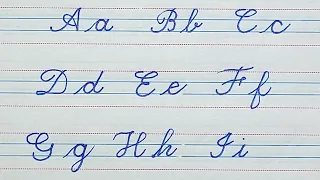 A a B b C c
D d E e F f
G g H h I i